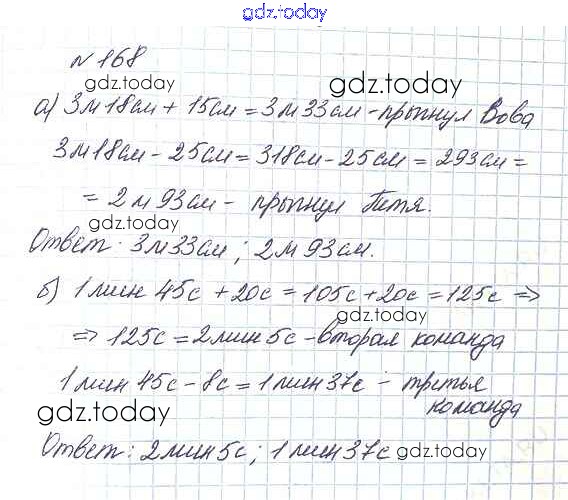 gdz.today
№ 168
gdz.today gdz.today
а) 3м 18см + 15см = 3м 33см - прыгнул Вова
3м 18см - 25см = 318см - 25см = 293см =
= 2м 93см - прыгнул Петя.
gdz.today
Ответ: 3м 33см; 2м 93см.
б) 1 мин 45с + 20с = 105с + 20с = 125с ⇒
gdz.today
⇒ 125с = 2 мин 5с - вторая команда
1 мин 45с - 8с = 1 мин 37с - третья
команда
gdz.today
Ответ: 2 мин 5с; 1 мин 37с gdz.today